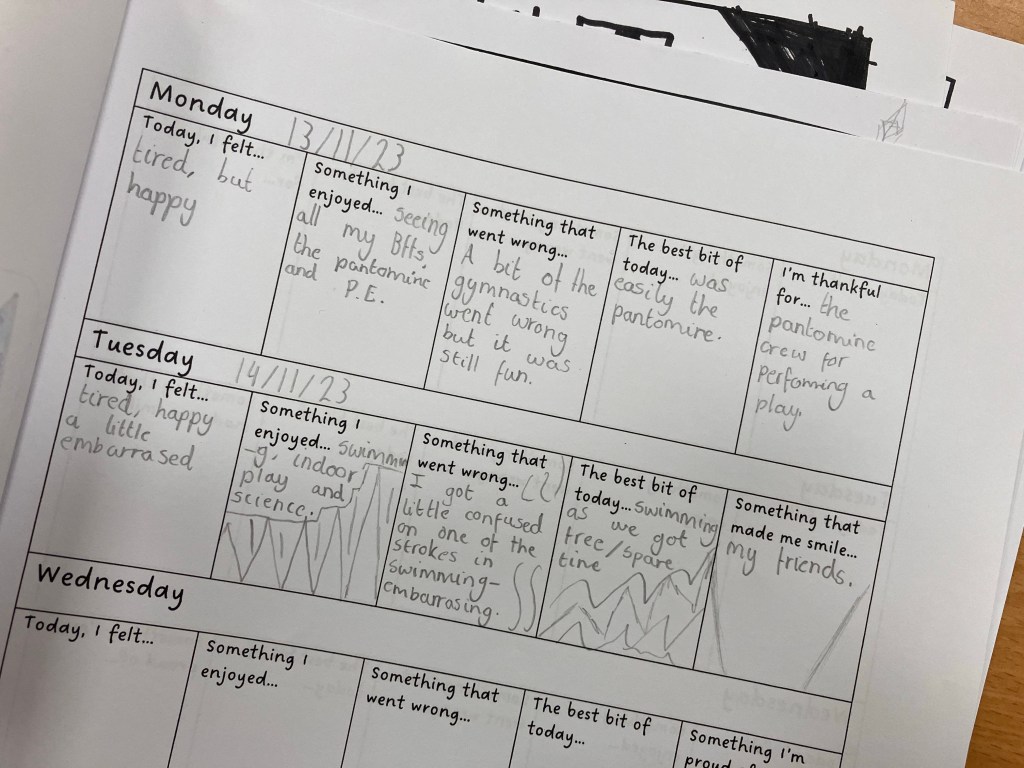 Monday 13/11/23
Today, I felt...
tired, but
happy
Something I
enjoyed... seeing
all my Bffs,
the pantomine
and P.E.
Something that
went wrong...
A bit of the
gymnastics
went wrong
but it was
still fun.
The best bit of
today... was
easily the
pantomine.
I'm thankful
for... the
pantomine
crew for
performing a
play.
Tuesday 14/11/23
Today, I felt...
tired, happy
a little
embarrased
Something I
enjoyed... swimmin
-g, indoor
play and
science.
Something that
went wrong...
I got a
little confused
on one of the
strokes in
swimming-
embarrasing.
The best bit of
today... swimming
as we got
free/spare
time
Something that
made me smile...
my friends.
Wednesday
Today, I felt...
Something I
enjoyed...
Something that
went wrong...
The best bit of
today...
Something I'm